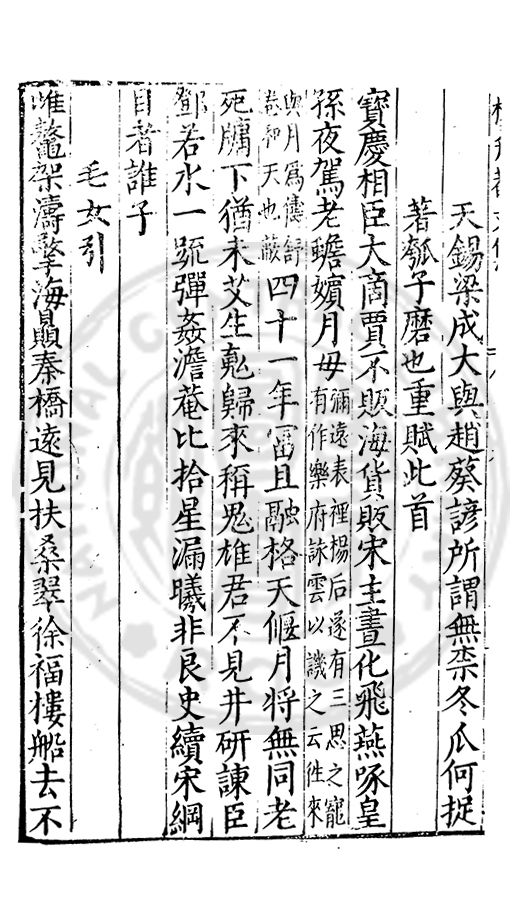 天錫梁成大與趙蔡諺所謂無柰冬瓜何捉
著瓠子磨也重賦此首
寶慶相臣大商賈不販海貨販宋主晝化飛燕啄皇
孫夜駕老蟾嬪月母
彌遠表裡楊后遂有三思之寵
有作樂府詠雲以譏之云徃來
與月為儔舒
卷和天也蔽
四十一年富且融格天偃月將無同老
死牖下猶未艾生鬼歸來稱鬼雄君不見井研諫臣
鄧若水一䟽彈姦澹菴比拾星漏曦非良史續宋綱
目者誰子
毛女引
雎鰲架濤擎海顯秦橋遠見扶桑翠徐福樓船去不